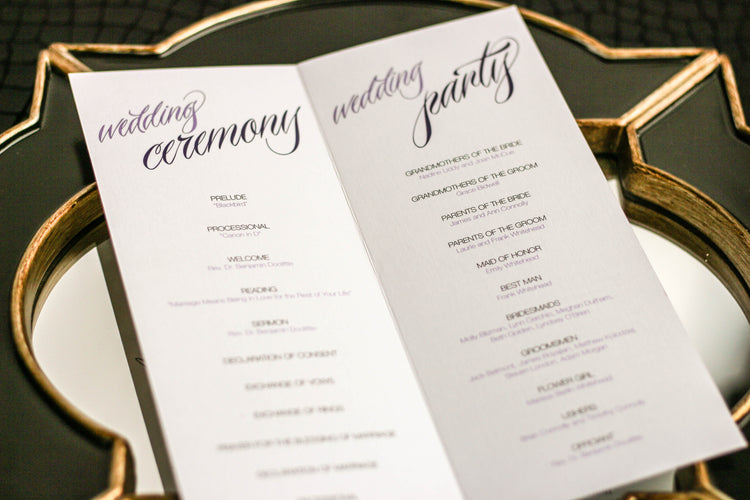 wedding
ceremony
PRELUDE
"Blackbird"
PROCESSIONAL
"Canon in D"
WELCOME
Rev. Dr. Benjamin Doolittle
READING
"Marriage Means Being in Love for the Rest of Your Life"
SERMON
Rev. Dr. Benjamin Doolittle
DECLARATION OF CONSENT
EXCHANGE OF VOWS
EXCHANGE OF RINGS
PRAYER FOR THE BLESSING OF MARRIAGE
DECLARATION OF MARRIAGE
wedding
party
GRANDMOTHERS OF THE BRIDE
Nadine Liddy and Joan McCue
GRANDMOTHERS OF THE GROOM
Grace Bidwell
PARENTS OF THE BRIDE
James and Ann Connolly
PARENTS OF THE GROOM
Laurie and Frank Whitehead
MAID OF HONOR
Emily Whitehead
BEST MAN
Frank Whitehead
BRIDESMAIDS
Molly Blizman, Lynn Carchio, Meghan Durham,
Beth Golden, Lyndsey O'Brien
GROOMSMEN
Jack Belmont, James Matthew
Steven London, Adam Morgan
FLOWER GIRL
Whitehead
USHERS
Brian Connolly and Timothy Connolly
OFFICIANT
Rev. Dr. Benjamin Doolittle